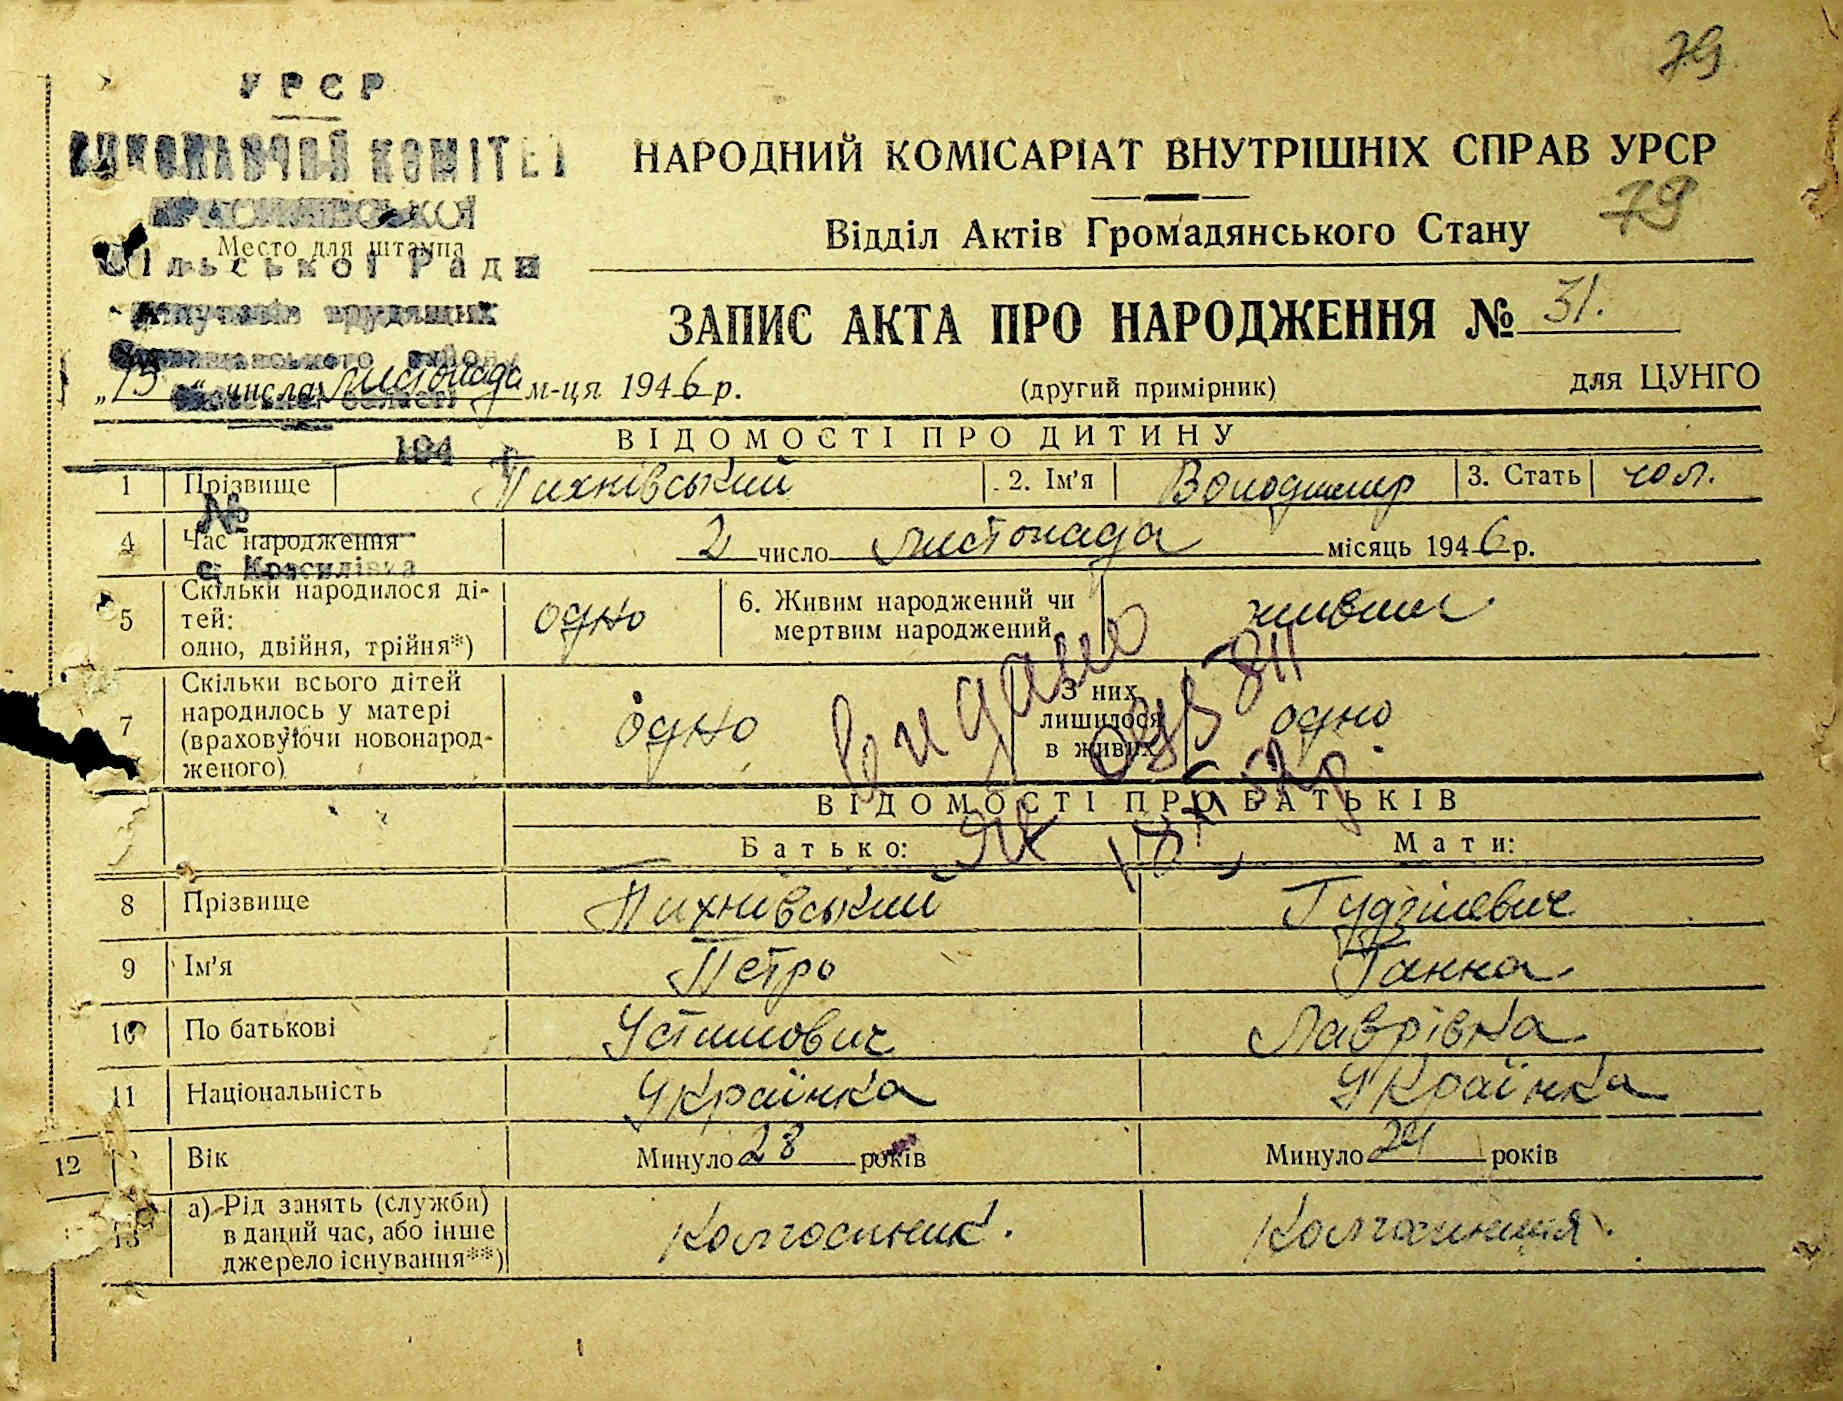 79
УРСР
ВИКОНАВЧИЙ КОМІТЕТ
КРАСИЛІВСЬКОЇ
Место для штампа
Сільської Ради
депутатів трудящих
району
області
194
№
с. Красилівка
НАРОДНИЙ КОМІСАРІАТ ВНУТРІШНІХ СПРАВ УРСР
79
Відділ Актів Громадянського Стану
ЗАПИС АКТА ПРО НАРОДЖЕННЯ № 31.
„15“ числа листопада м-ця 1946 р.
(другий примірник)
для ЦУНГО
ВІДОМОСТІ ПРО ДИТИНУ
1 Прізвище Пихнівський 2. Ім'я Володимир 3. Стать чол.
4 Час народження 2 число листопада місяць 1946 р.
5 Скільки народилося ді-
тей:
одно, двійня, трійня*) одно
6. Живим народжений чи
мертвим народжений живим
7 Скільки всього дітей
народилось у матері
(враховуючи новонарод-
женого) одно
З них
лишилося
в живих одно
видано
ВІДОМОСТІ ПРО БАТЬКІВ
Батько: Мати:
8 Прізвище Пихнівський Гудзікевич
9 Ім'я Петро Ганна
10 По батькові Устимович Лаврівна
11 Національність Українка Українка
12 Вік Минуло 28 років Минуло 24 років
13 а) Рід занять (служби)
в даний час, або інше
джерело існування**) Колгоспник. Колгоспниця.